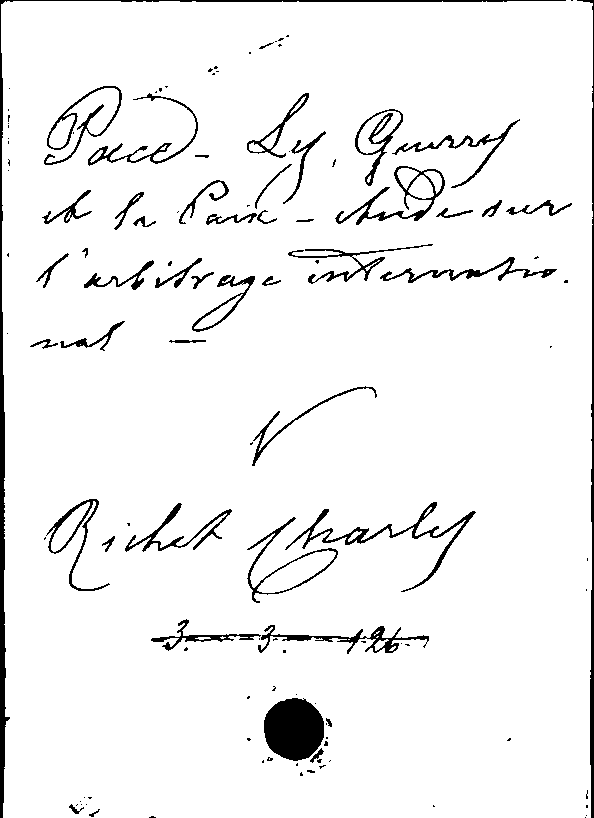 Pace - Les Guerres
et la Paix - étude sur
l'arbitrage internatio.
nal -
V
Richet Charles
3. 3. 126